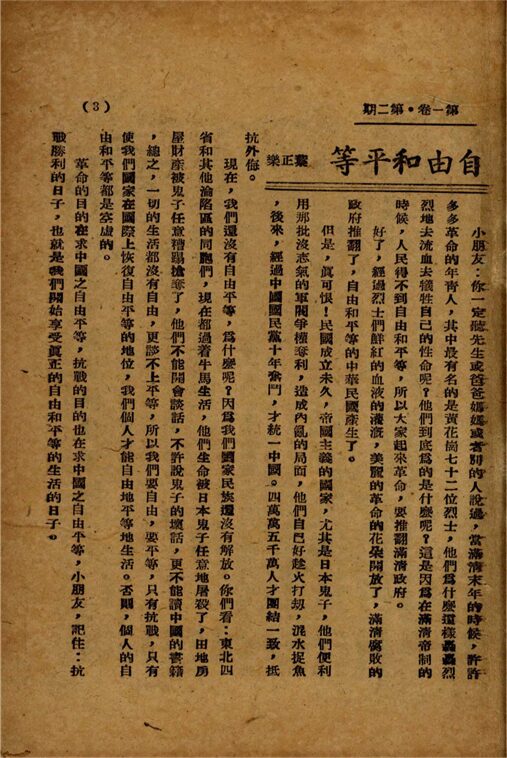 第一卷・第二期
(3)
自由和平等
葉正樂
小朋友：你一定聽先生或爸爸媽媽或者別的人說過，當滿清末年的時候，許許
多多革命的年青人，其中最有名的是黃花崗七十二位烈士，他們爲什麼這樣轟轟烈
烈地去流血去犧牲自己的性命呢？他們到底爲的是什麼呢？這是因爲在滿清帝制的
時候，人民得不到自由和平等，所以大家起來革命，要推翻滿清政府。
好了，經過烈士們鮮紅的血液的灌溉，美麗的革命的花朵開放了，滿清腐敗的
政府推翻了，自由和平等的中華民國產生了。
但是，眞可恨！民國成立未久，帝國主義的國家，尤其是日本鬼子，他們便利
用那批沒志氣的軍閥爭權奪利，造成內亂的局面，他們自已好趁火打刼，混水捉魚
，後來，經過中國國民黨十年奮鬥，才統一中國。四萬萬五千萬人才團結一致，抵
抗外侮。
現在，我們還沒有自由平等，爲什麼呢？因爲我們國家民族還沒有解放。你們看：東北四
省和其他淪陷區的同胞們，現在都過着牛馬生活，他們生命被日本鬼子任意地屠殺了，田地房
屋財產被鬼子任意糟蹋搶奪了，他們不能開會談話，不許說鬼子的壞話，更不能讀中國的書籍
，總之，一切的生活都沒有自由，更談不上平等，所以我們要自由，要平等，只有抗戰，只有
使我們國家在國際上恢復自由平等的地位，我們個人才能自由地平等地生活。否則，個人的自
由和平等都是空虛的。
革命的目的在求中國之自由平等，抗戰的目的也在求中國之自由平等，小朋友，記住：抗
戰勝利的日子，也就是我們開始享受眞正的自由和平等的生活的日子。